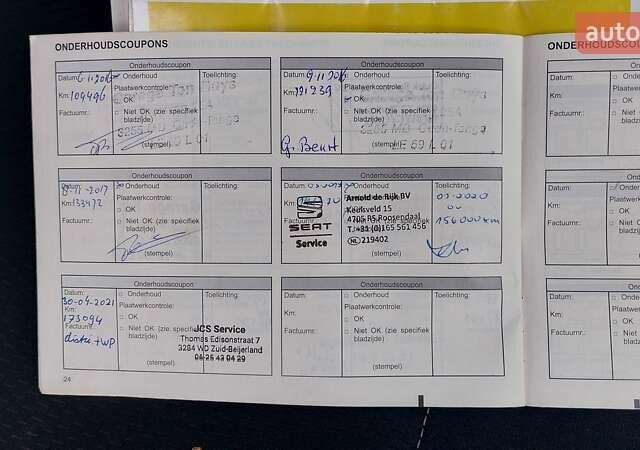 auto
ONDERHOUDSCOUPONS
ONDERHOUDSCOU
Onderhoudscoupon
Datum: 6-11-2015
Onderhoud
Toelichting:
Km: 109496
Plaatwerkcontrole:
OK
Factuurnr.:
Niet OK (zie specifiek bladzijde)
(stempel)
Garage Ton Buys
3256 MD Oude-Tonge
Onderhoudscoupon
Datum: 9-11-2016
Onderhoud
Toelichting:
Km: 121239
Plaatwerkcontrole:
OK
Factuurnr.:
Niet OK (zie specifiek bladzijde)
G. Beurt
(stempel)
Onderhoudscoupon
Datum:
8-11-2017
Onderhoud
Toelichting:
Km: 133472
Plaatwerkcontrole:
OK
Factuurnr.:
Niet OK (zie specifiek bladzijde)
(stempel)
Onderhoudscoupon
Datum:
Onderhoud
Toelichting:
Arnold de Rijk BV
Keursveld 15
4705 RS Roosendaal
T. +31 (0)165 561 456
NL 219402
SEAT
Service
156000km
(stempel)
Onderhoudscoupon
Datum:
30-04-2021
Onderhoud
Toelichting:
Km:
173094
Plaatwerkcontrole:
OK
Factuurnr.:
Niet OK (zie specifiek bladzijde)
(stempel)
JCS Service
Thomas Edisonstraat 7
3284 WD Zuid-Beijerland
06 25 42 04 29
Onderhoudscoupon
Datum:
Onderhoud
Toelichting:
Km:
Plaatwerkcontrole:
OK
Factuurnr.:
Niet OK (zie specifiek bladzijde)
(stempel)
24
Datum:
Km:
Factuurnr.:
Datum:
Km:
Factuurnr.:
Datum:
Km:
Factuurnr.: